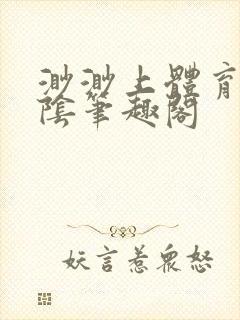 渺渺上體育
陰筆趣閣
妖言惹眾怒